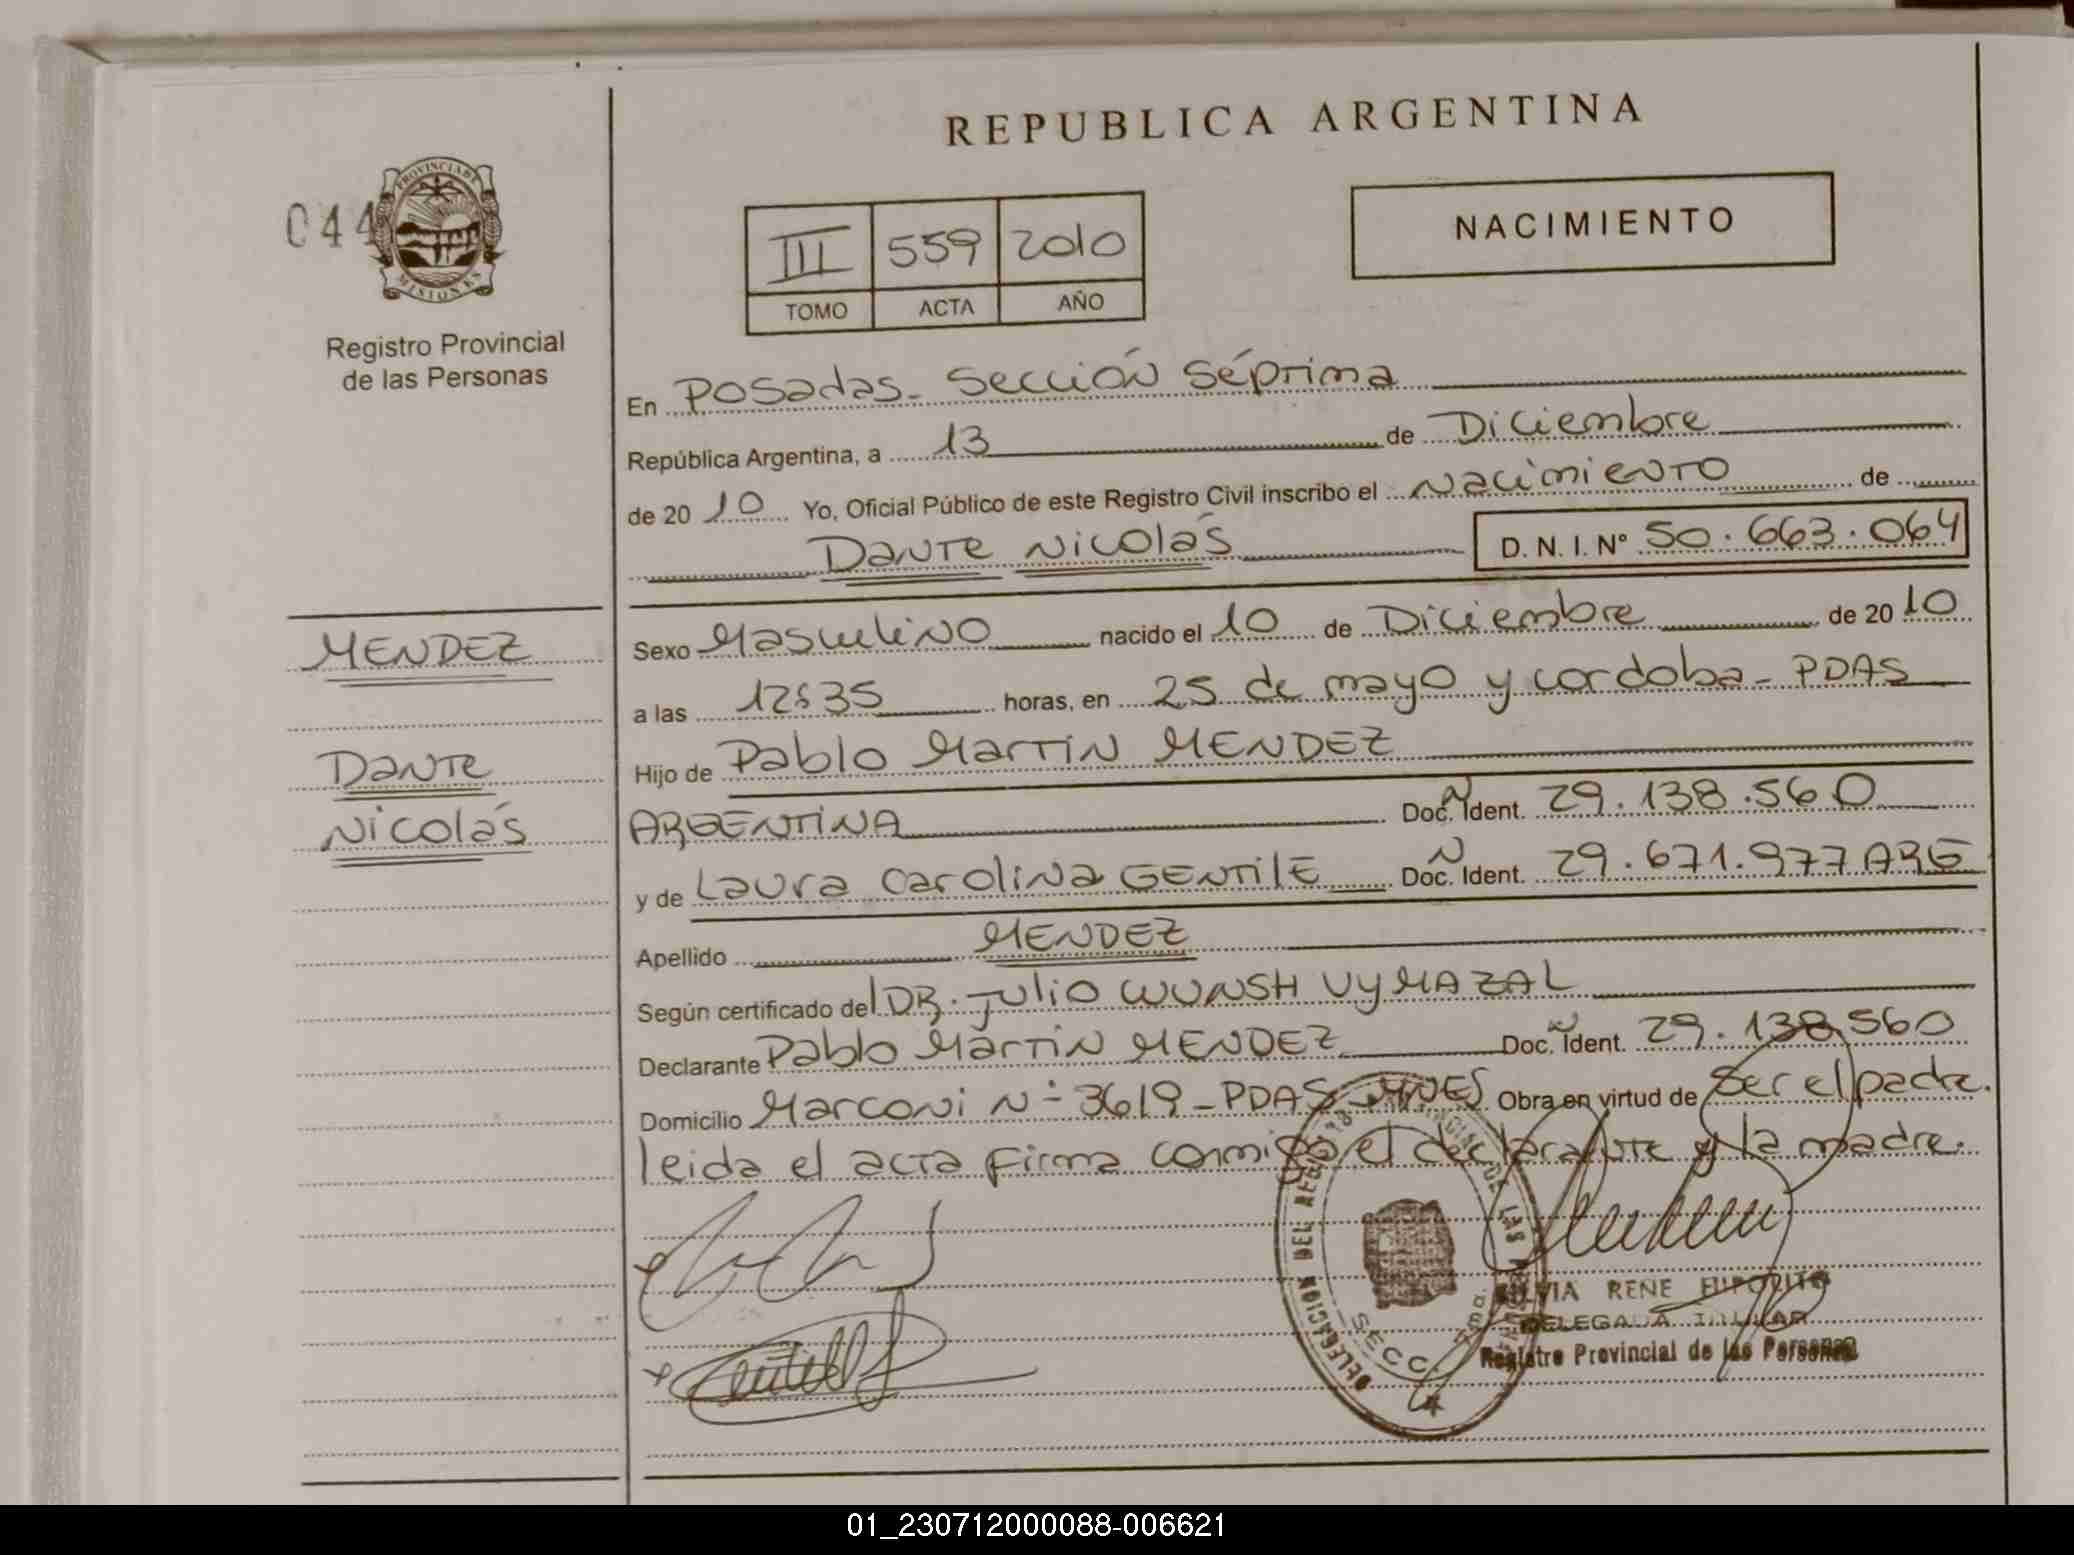 REPUBLICA ARGENTINA
044
PROVINCIA DE
MISIONES
Registro Provincial
de las Personas
III 559 2010
TOMO ACTA AÑO
NACIMIENTO
En Posadas - Sección Séptima
República Argentina, a 13 de Diciembre
de 20 10 Yo, Oficial Público de este Registro Civil inscribo el Nacimiento de
Dante Nicolás D. N. I. Nº 50.663.064
MENDEZ
Dante
Nicolás
Sexo Masculino nacido el 10 de Diciembre de 20 10
a las 12:35 horas, en 25 de mayo y cordoba - PDAS
Hijo de Pablo Martín MENDEZ
ARGENTINA Doc. Ident. 29.138.560
y de Laura Carolina GENTILE Doc. Ident. 29.671.977 ARG
Apellido MENDEZ
Según certificado del DR. Julio WUNSH VYMAZAL
Declarante Pablo Martín MENDEZ Doc. Ident. 29.138.560
Domicilio Marconi Nº 3619 - PDAS - MNES Obra en virtud de Ser el padre.
leida el acta firma conmigo el declarante y la madre.
DELEGACION DEL REG PROVINCIAL DE LAS
SECC.
SILVIA RENE HIPOLITO
DELEGADA TITULAR
Registro Provincial de las Personas
01_230712000088-006621